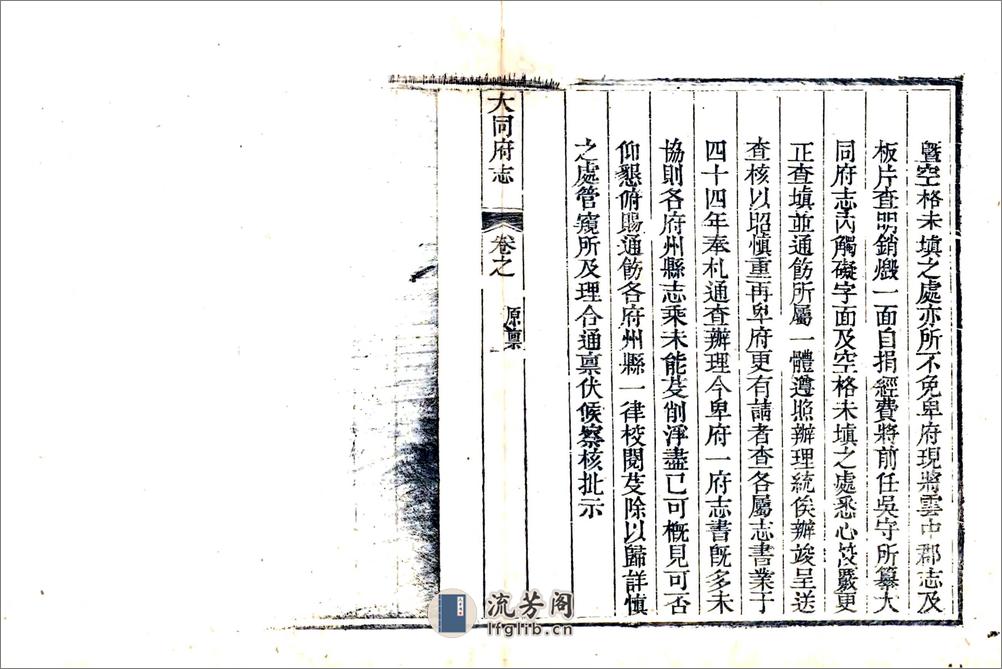 曁空格未塡之處亦所不免卑府現將雲中郡志及
板片查明銷燬一面自捐經費將前任吳守所纂大
同府志內觸礙字面及空格未塡之處悉心考覈更
正查塡並通飭所屬一體遵照辦理統俟辦竣呈送
查核以昭愼重再卑府更有請者查各屬志書業于
四十四年奉札通查辦理今卑府一府志書旣多未
協則各府州縣志乘未能芟削淨盡已可概見可否
仰懇俯賜通飭各府州縣一律校閱芟除以歸詳愼
之處管窺所及理合通稟伏候察核批示
大同府志 卷之 原稟
流芳閣
lfglib.cn